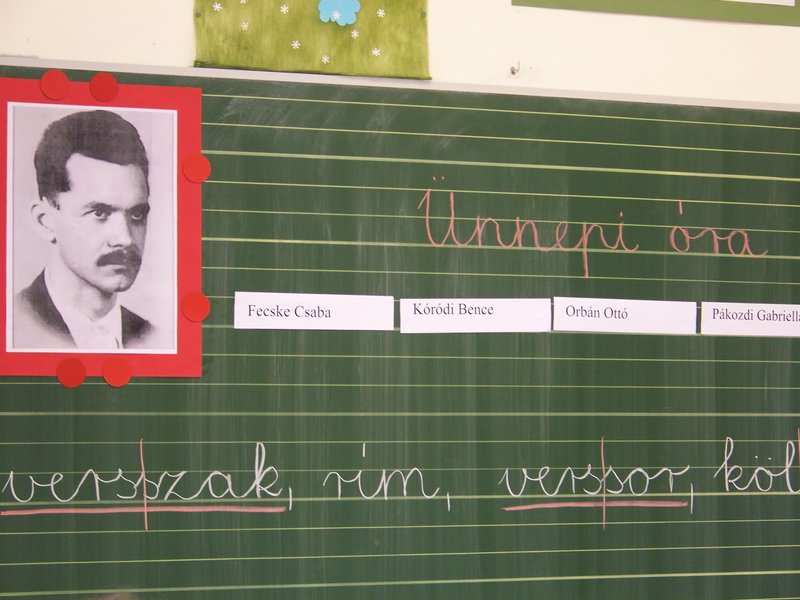 Ünnepi óra
Fecske Csaba Kóródi Bence Orbán Ottó Pákozdi Gabriella
versszak, rím, verssor, köl